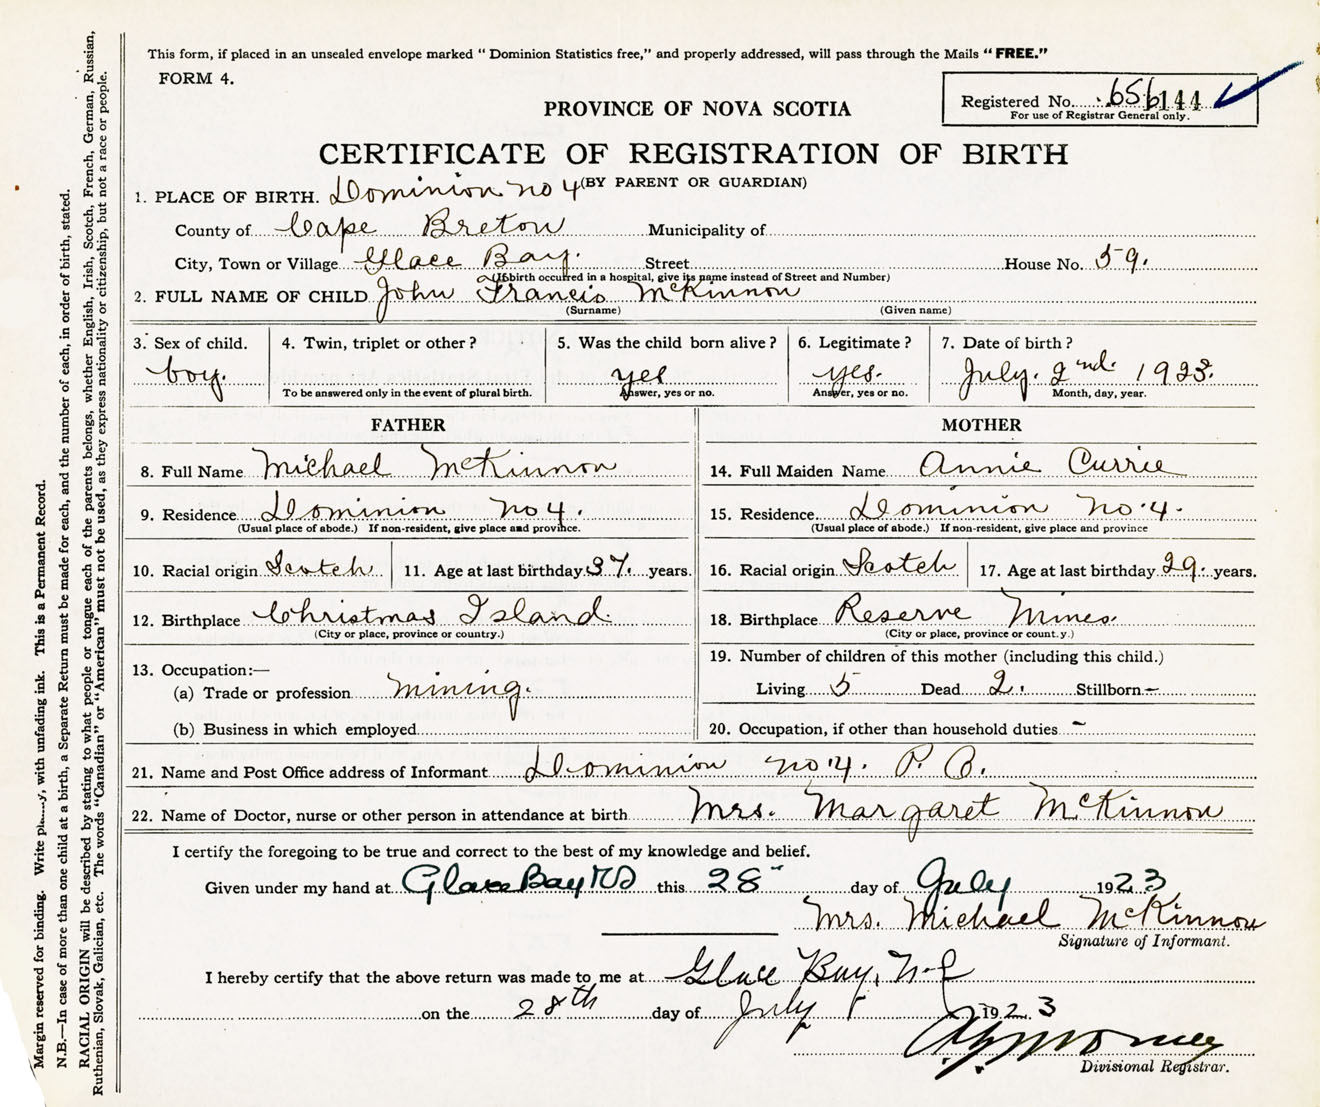 This form, if placed in an unsealed envelope marked “ Dominion Statistics free,” and properly addressed, will pass through the Mails “ FREE.”
FORM 4.
Registered No. 656144
For use of Registrar General only.
PROVINCE OF NOVA SCOTIA
CERTIFICATE OF REGISTRATION OF BIRTH
(BY PARENT OR GUARDIAN)
1. PLACE OF BIRTH. Dominion no 4
County of Cape Breton Municipality of
City, Town or Village Glace Bay. Street House No. 59.
(If birth occurred in a hospital, give its name instead of Street and Number)
2. FULL NAME OF CHILD John Francis McKinnon
(Surname) (Given name)
3. Sex of child. boy.
4. Twin, triplet or other ?
To be answered only in the event of plural birth.
5. Was the child born alive ? yes
Answer, yes or no.
6. Legitimate ? yes.
Answer, yes or no.
7. Date of birth ? July. 2nd. 1923.
Month, day, year.
FATHER
8. Full Name Michael McKinnon
9. Residence Dominion No 4.
(Usual place of abode.) If non-resident, give place and province.
10. Racial origin Scotch 11. Age at last birthday 37. years.
12. Birthplace Christmas Island.
(City or place, province or country.)
13. Occupation:—
(a) Trade or profession mining.
(b) Business in which employed
MOTHER
14. Full Maiden Name Annie Currie
15. Residence Dominion No. 4.
(Usual place of abode.) If non-resident, give place and province
16. Racial origin Scotch 17. Age at last birthday 29. years.
18. Birthplace Reserve Mines.
(City or place, province or count.y.)
19. Number of children of this mother (including this child.)
Living 5 Dead 2. Stillborn –
20. Occupation, if other than household duties –
21. Name and Post Office address of Informant Dominion no. 4. P. O.
22. Name of Doctor, nurse or other person in attendance at birth Mrs. Margaret McKinnon
I certify the foregoing to be true and correct to the best of my knowledge and belief.
Given under my hand at Glace Bay this 28 day of July 1923
Mrs. Michael McKinnon
Signature of Informant.
I hereby certify that the above return was made to me at Glace Bay, N-S
on the 28th day of July 1923
Divisional Registrar.
Margin reserved for binding. Write, with unfading ink. This is a Permanent Record.
N.B.—In case of more than one child at a birth, a Separate Return must be made for each, and the number of each, in order of birth, stated.
RACIAL ORIGIN will be described by stating to what people or tongue each of the parents belongs, whether English, Irish, Scotch, French, German, Russian,
Ruthenian, Slovak, Galician, etc. The words “Canadian” or “American” must not be used, as they express nationality or citizenship, but not a race or people.